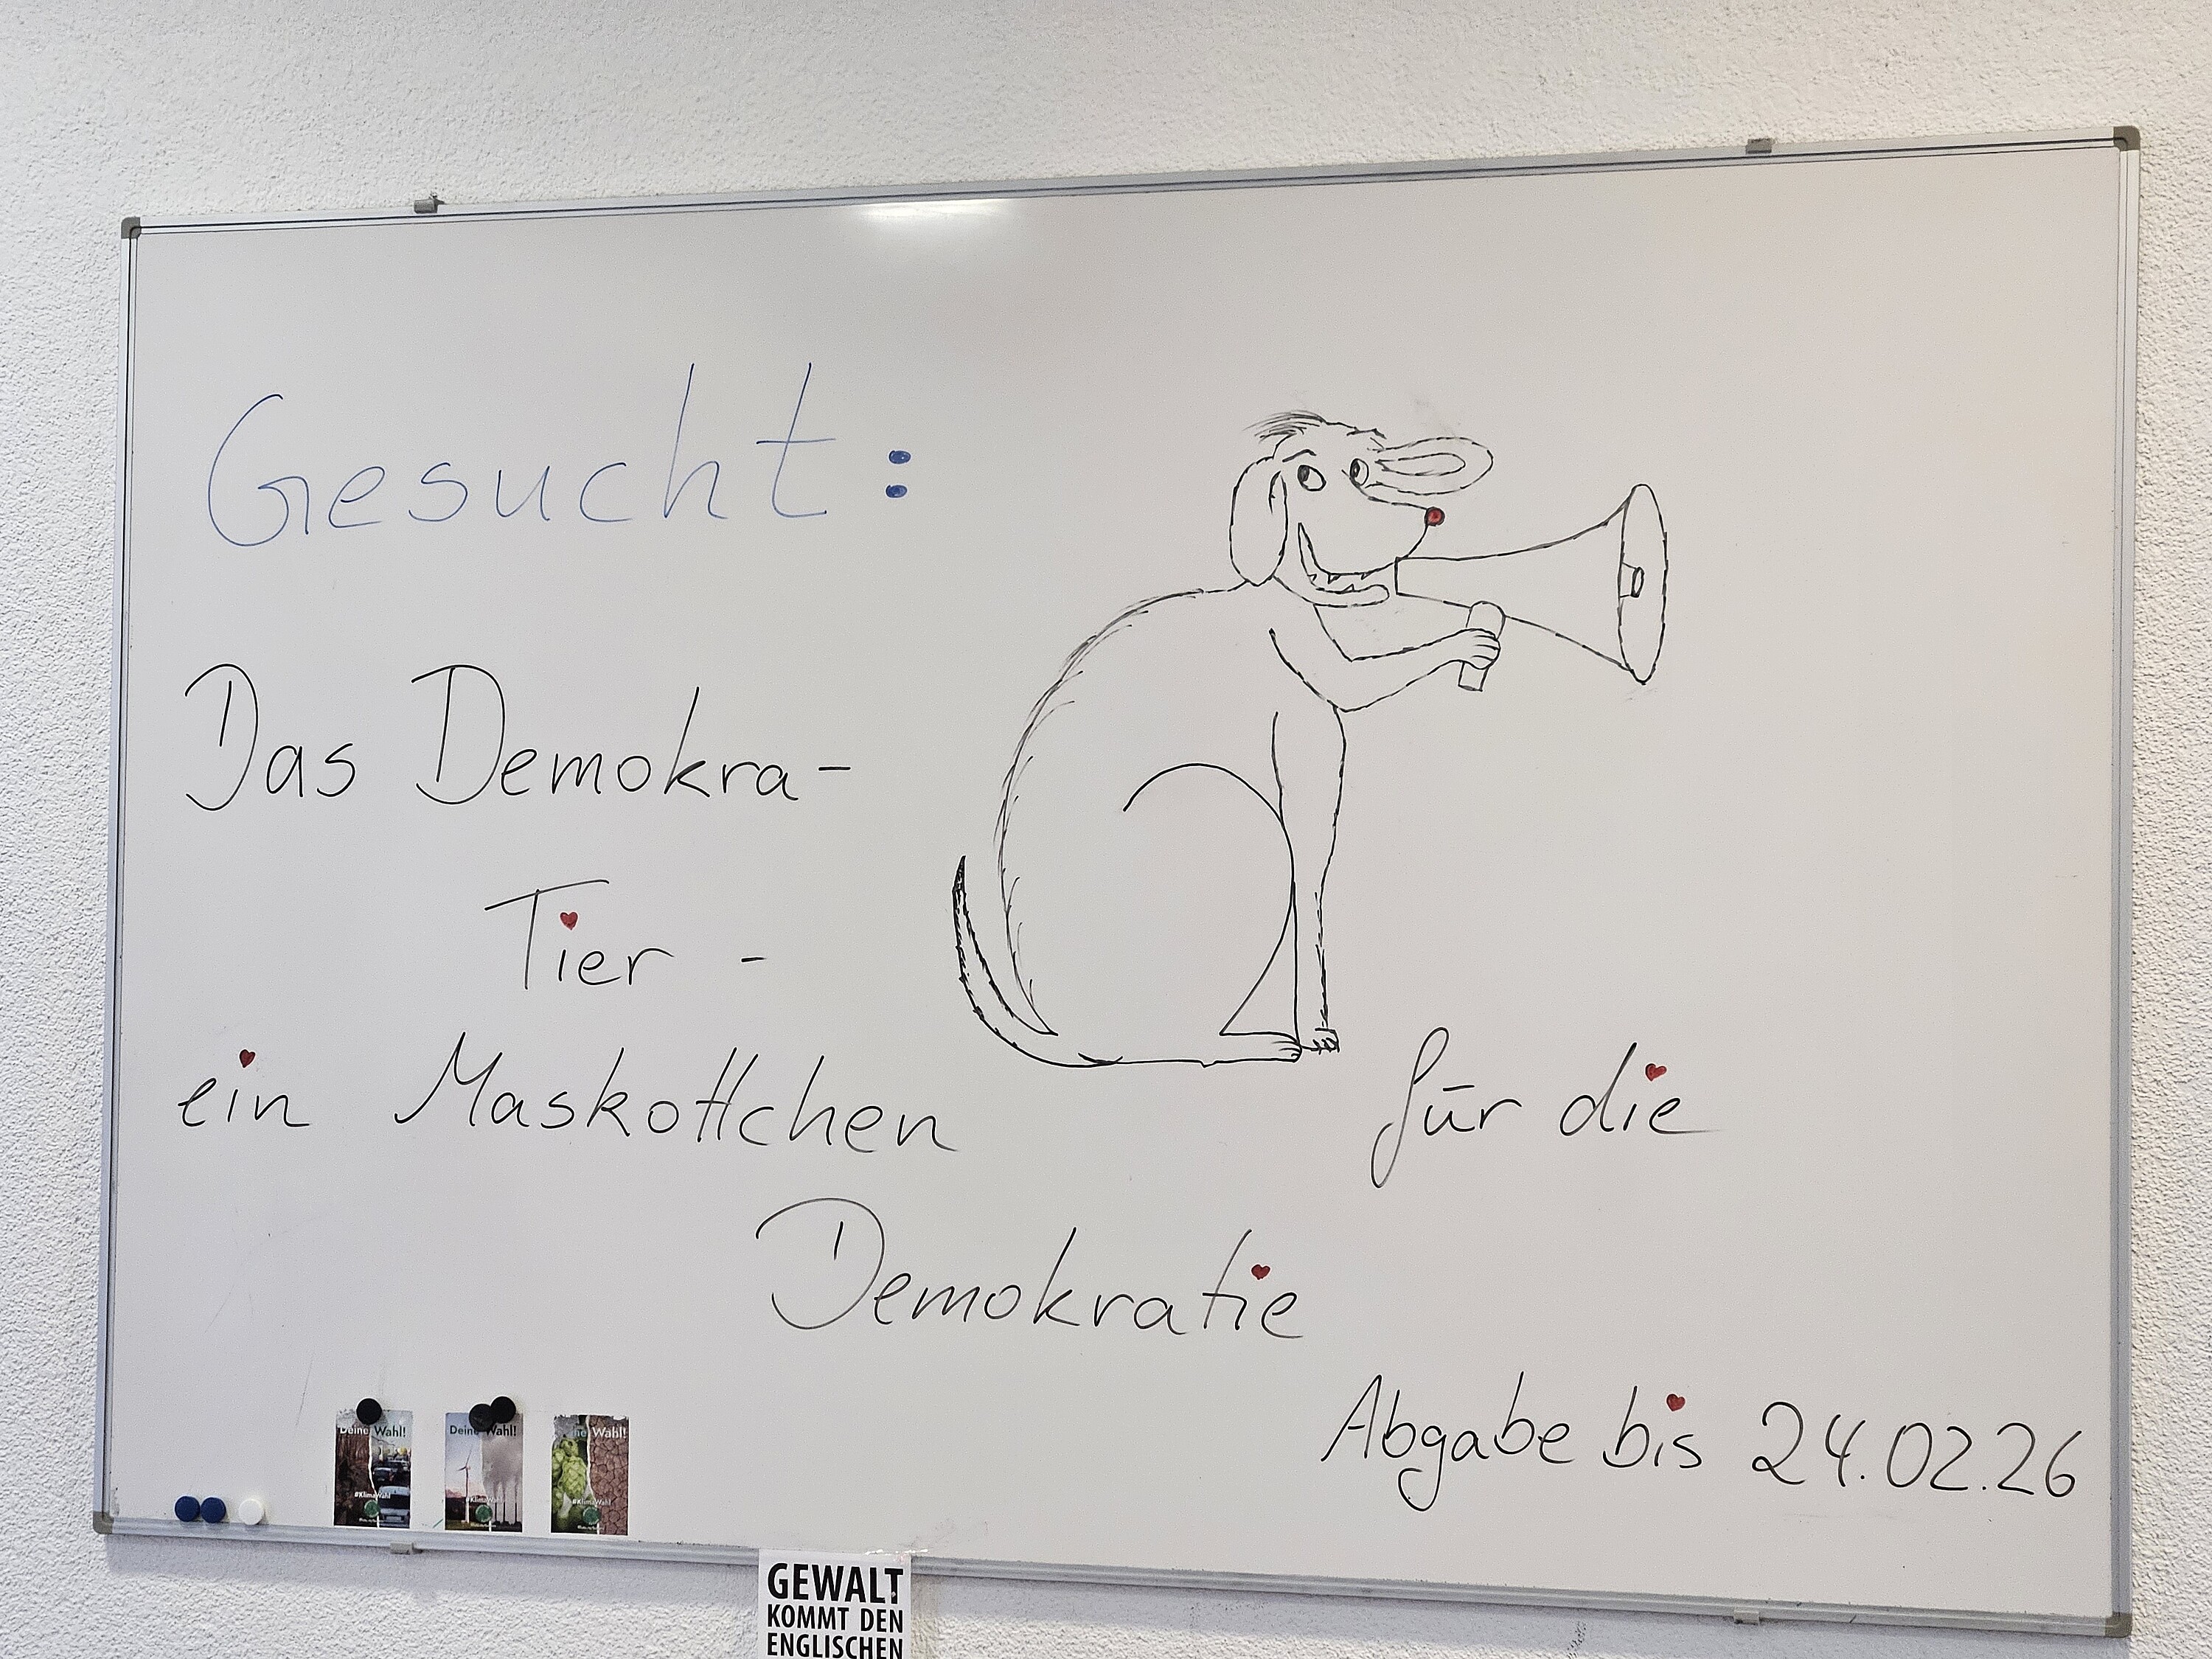 Gesucht:
Das Demokra-
Tier -
ein Maskottchen für die
Demokratie
Abgabe bis 24.02.26
Deine Wahl!
#KlimaWahl
Deine Wahl!
#KlimaWahl
ne Wahl!
#KlimaWahl
GEWALT
KOMMT DEN
ENGLISCHEN